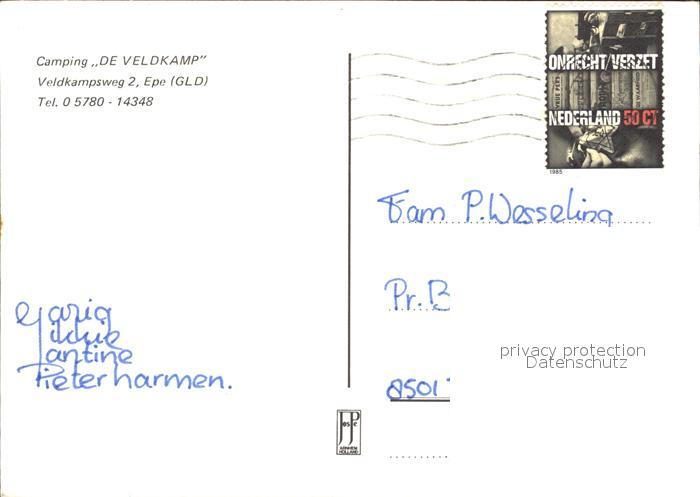 Camping „DE VELDKAMP"
Veldkampsweg 2, Epe (GLD)
Tel. 0 5780 - 14348
ONRECHT/VERZET
NEDERLAND 50 CT
1985
Fam P. Wesseling
Pr. B
8501
privacy protection
Datenschutz
Jantine
Pieter harmen.
JosPe
ARNHEM
HOLLAND